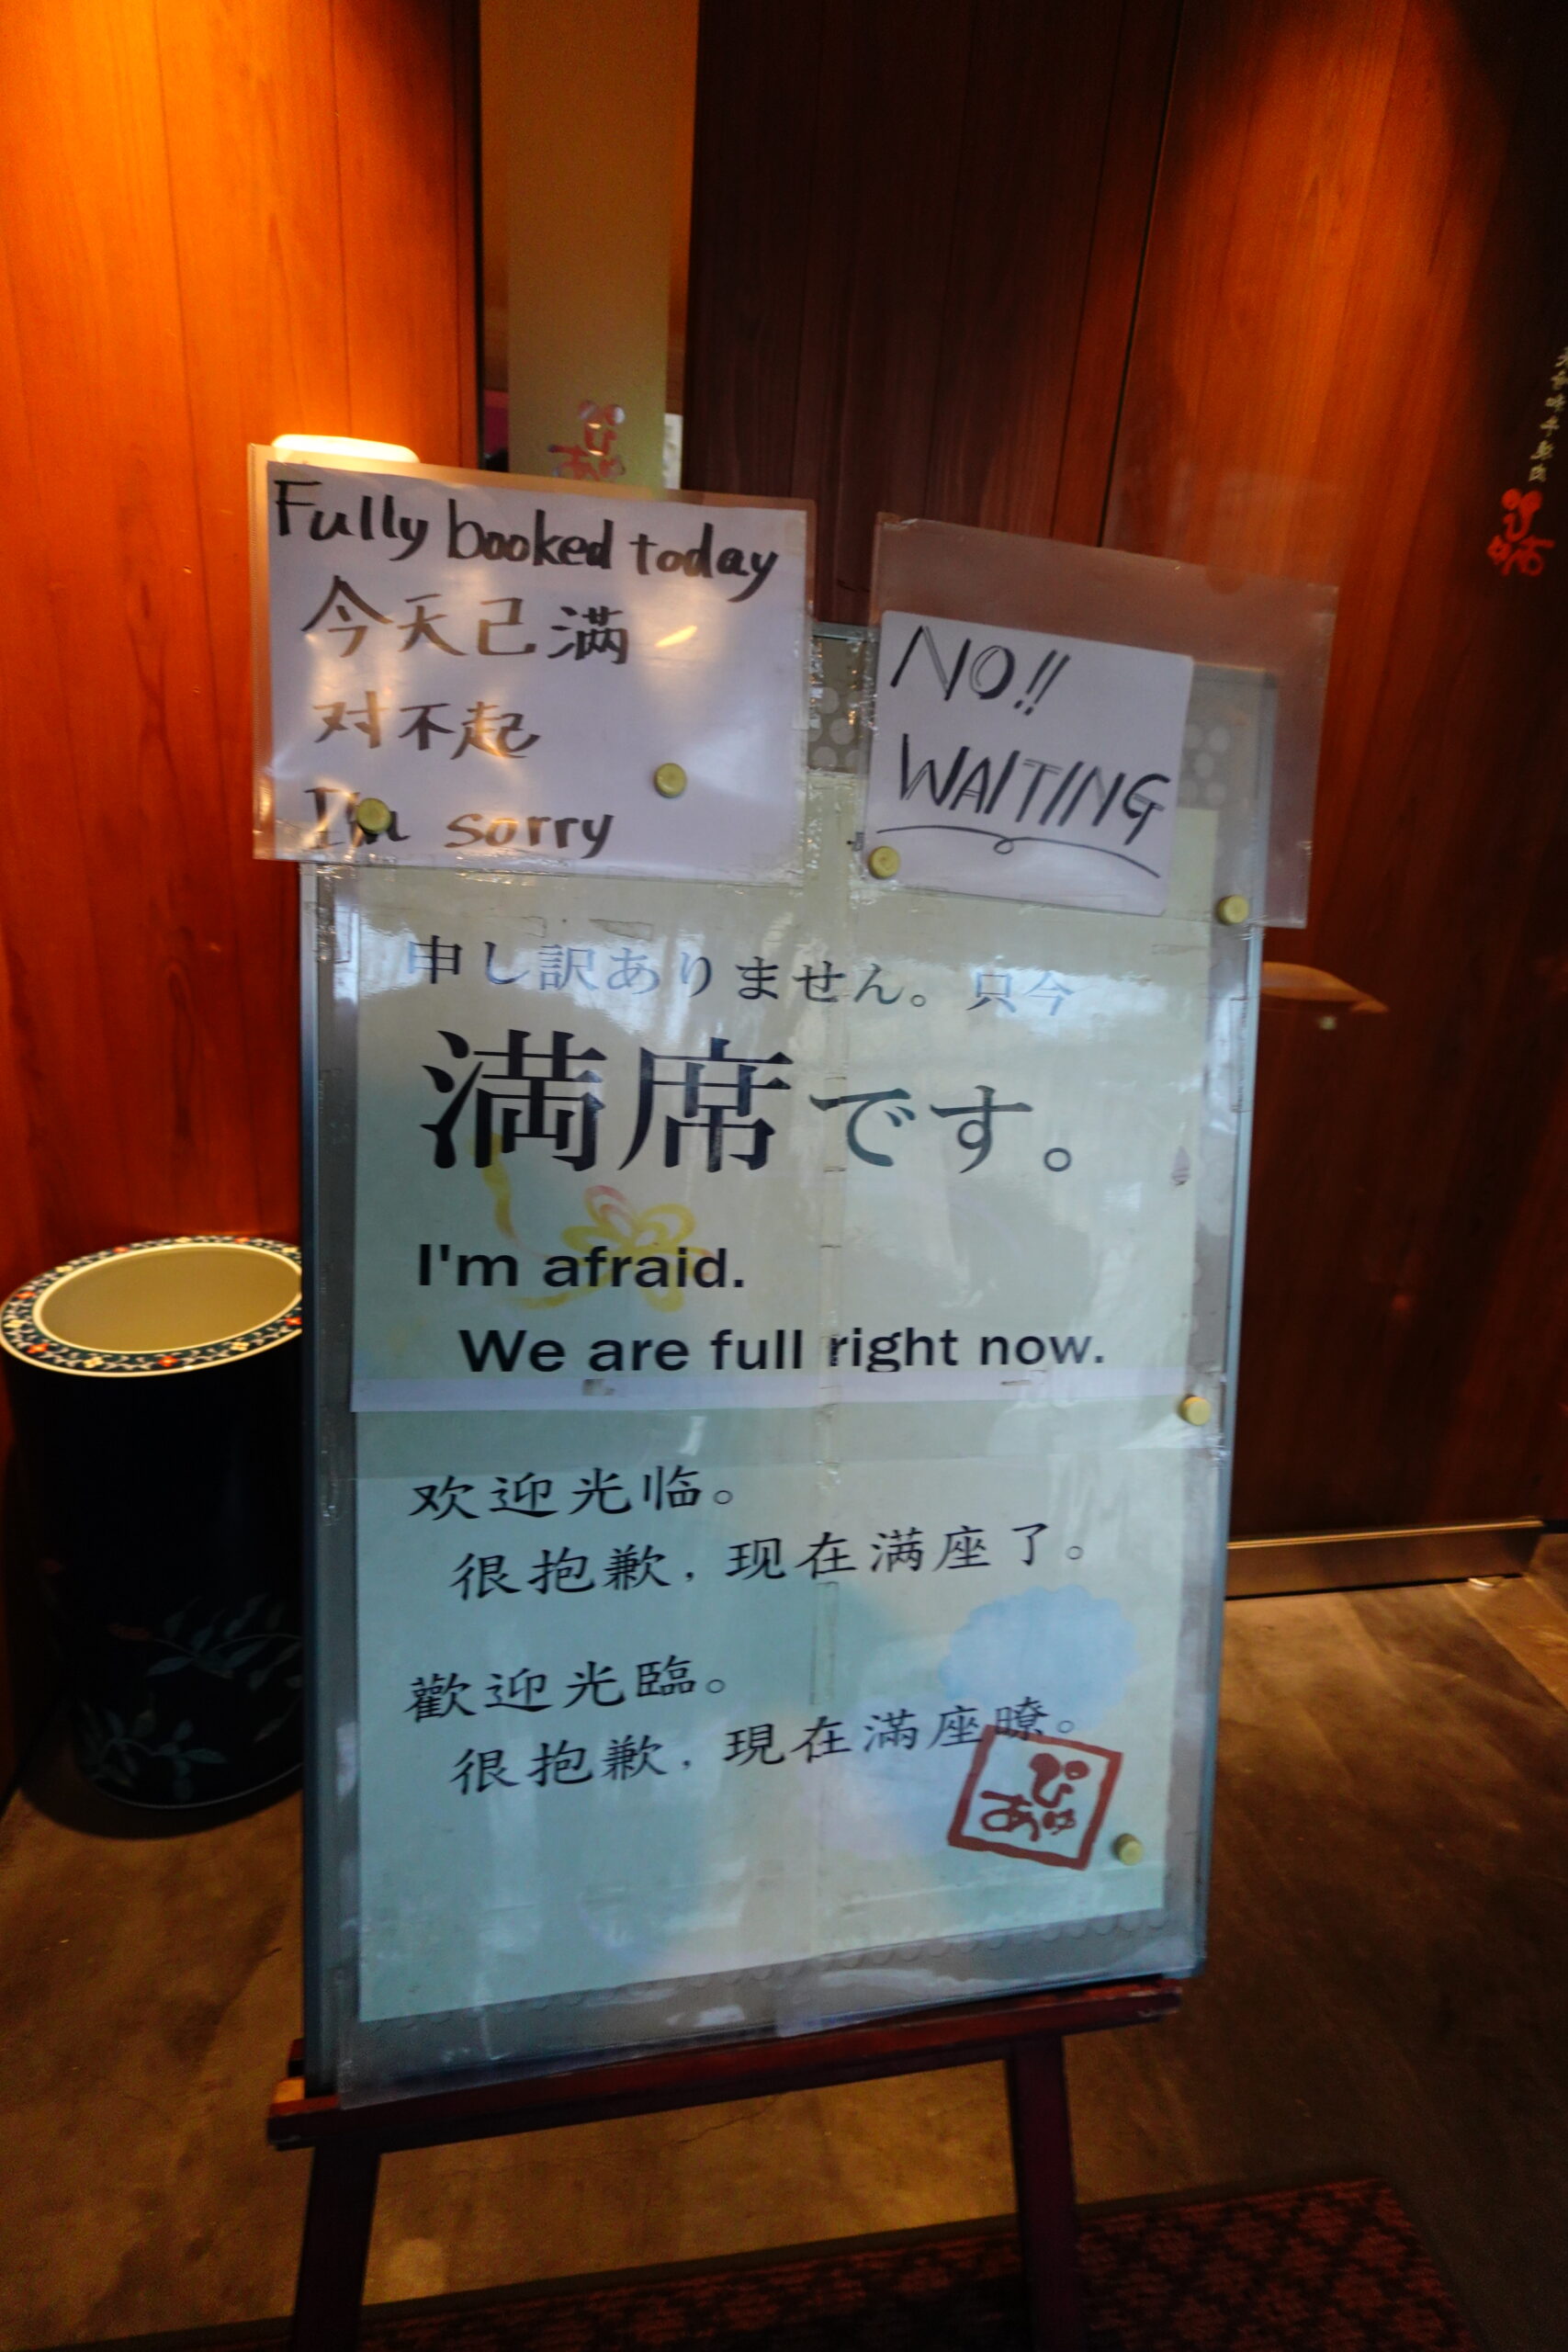 Fully booked today
今天己满
对不起
I'm sorry
NO!!
WAITING
申し訳ありません。只今
満席です。
I'm afraid.
We are full right now.
欢迎光临。
很抱歉，现在满座了。
歡迎光臨。
很抱歉，現在滿座瞭。
ぴ
あゆ